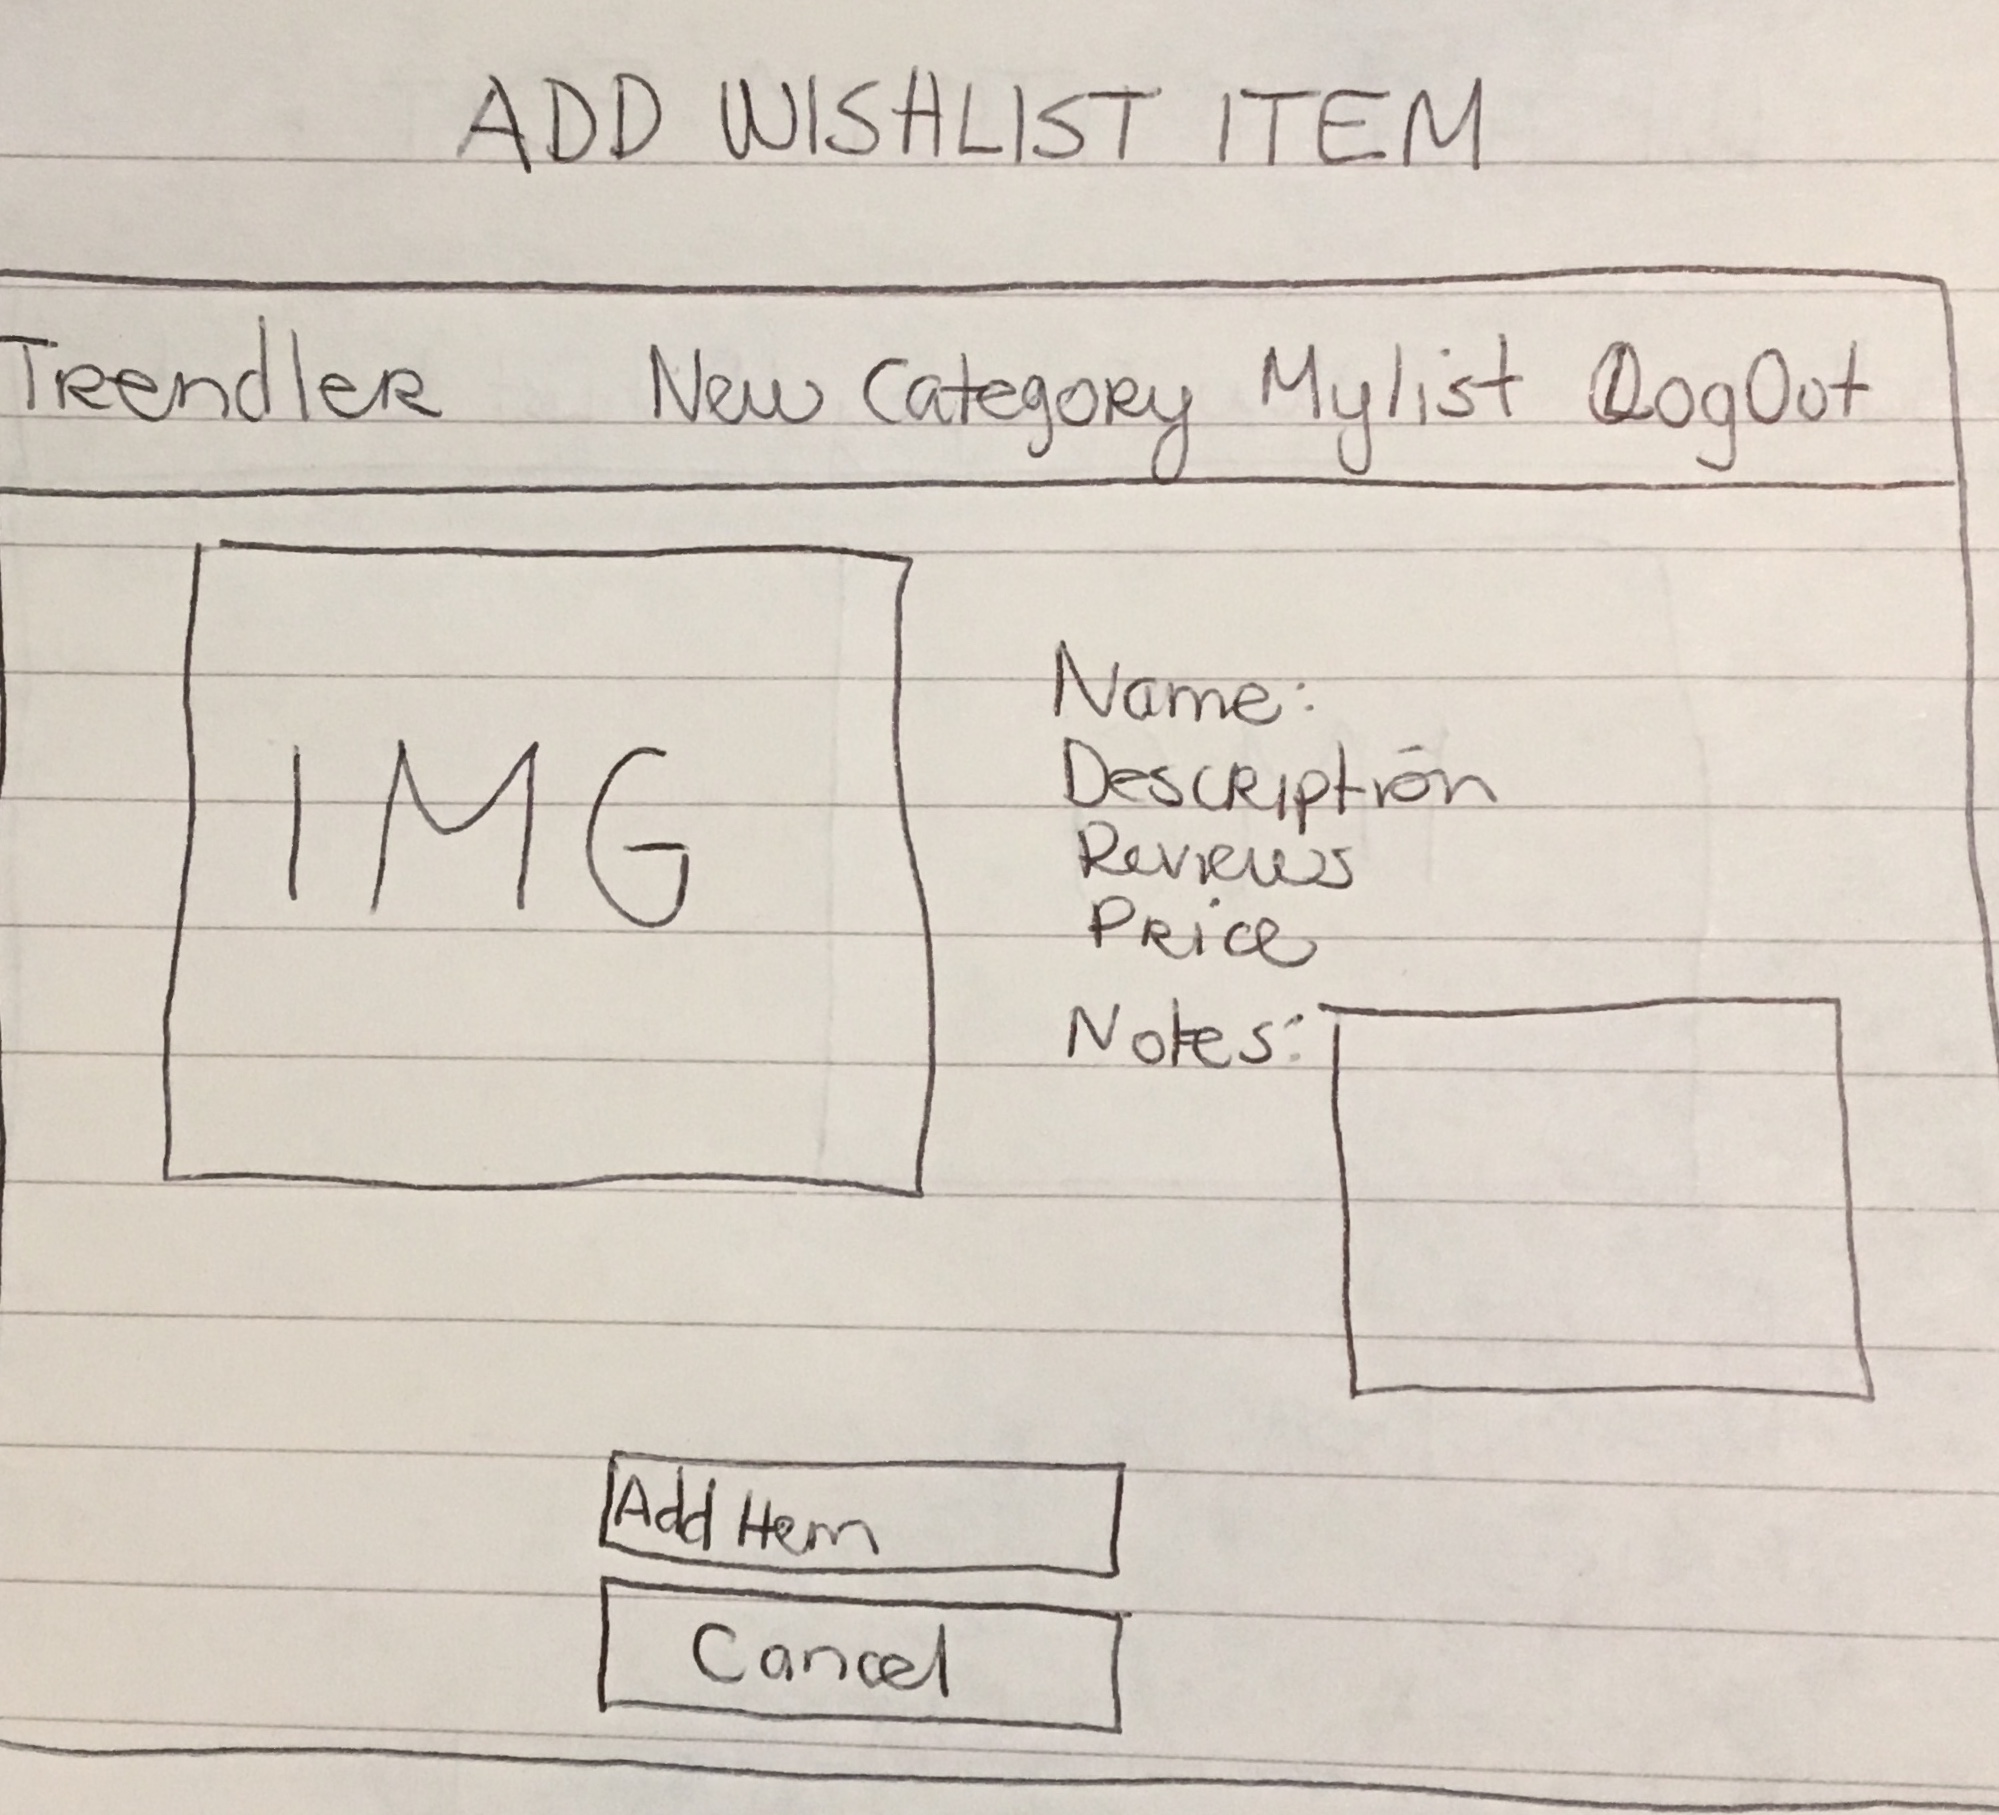 ADD WISHLIST ITEM
Trendler New Category Mylist LogOut
IMG
Name:
Description
Reviews
Price
Notes:
Add Item
Cancel